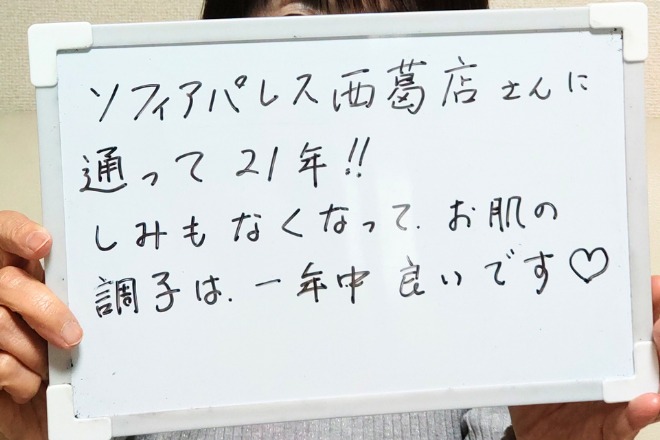 ソフィアパレス西葛店さんに
通って21年!!
しみもなくなって、お肌の
調子は、一年中良いです♡